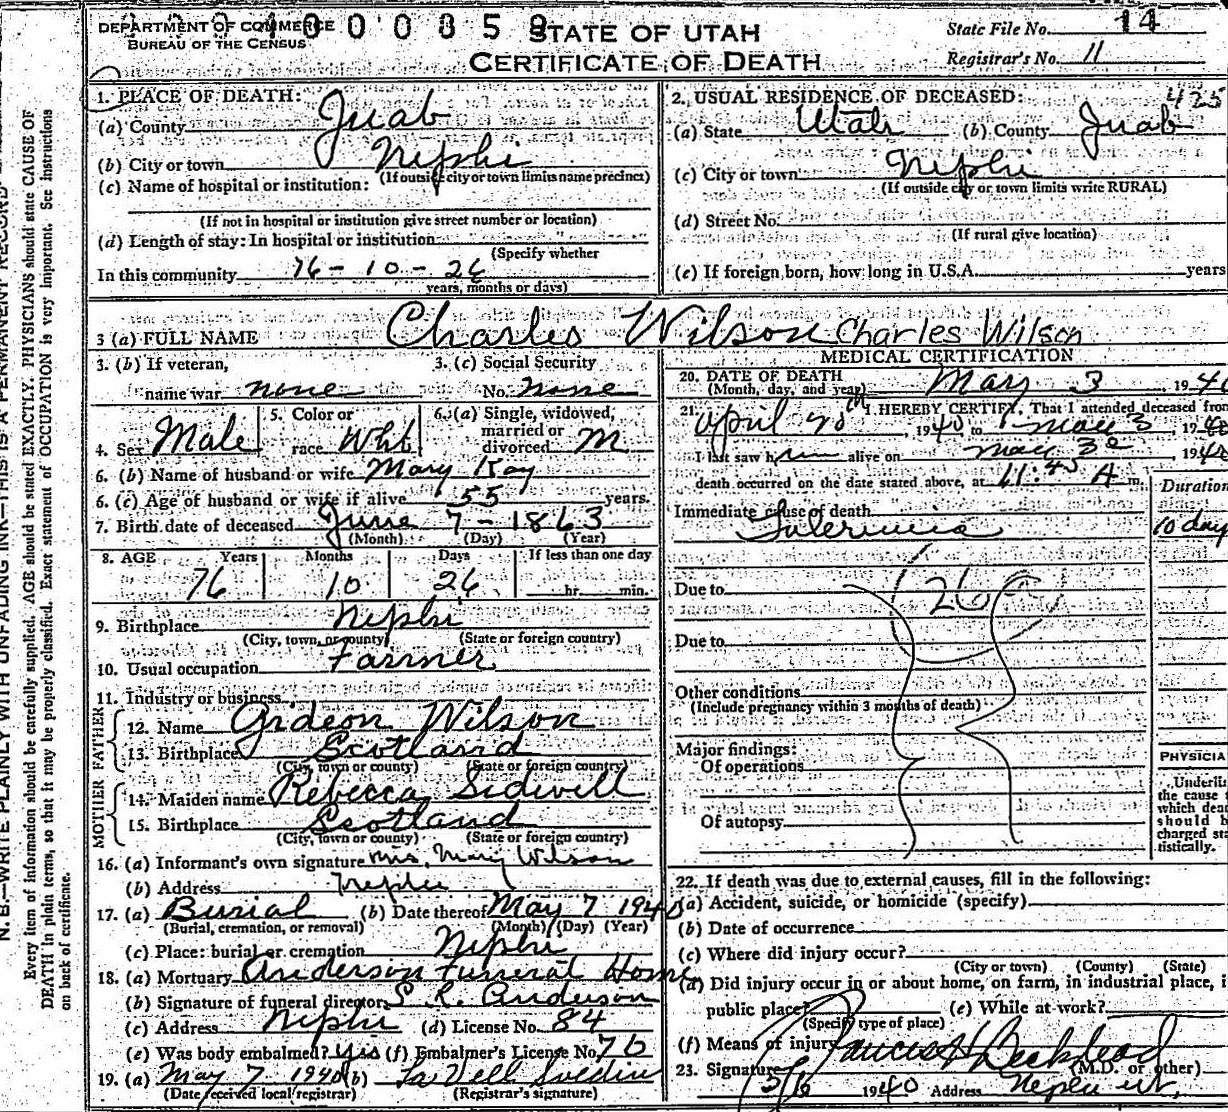 DEPARTMENT OF COMMERCE
BUREAU OF THE CENSUS
0 0 0 8 5 9
STATE OF UTAH
CERTIFICATE OF DEATH
State File No. 14
Registrar's No. 11
N. B.—WRITE PLAINLY WITH UNFADING INK—THIS IS A PERMANENT RECORD
Every item of information should be carefully supplied. AGE should be stated EXACTLY. PHYSICIANS should state CAUSE OF
DEATH in plain terms, so that it may be properly classified. Exact statement of OCCUPATION is very important. See instructions
on back of certificate.
1. PLACE OF DEATH:
(a) County Juab
(b) City or town Nephi
(If outside city or town limits name precinct)
(c) Name of hospital or institution:
(If not in hospital or institution give street number or location)
(d) Length of stay: In hospital or institution
(Specify whether
In this community 76-10-26
years, months or days)
2. USUAL RESIDENCE OF DECEASED: 425
(a) State Utah (b) County Juab
(c) City or town Nephi
(If outside city or town limits write RURAL)
(d) Street No.
(If rural give location)
(e) If foreign born, how long in U.S.A. years
3 (a) FULL NAME Charles Wilson Charles Wilson
3. (b) If veteran, name war none
3. (c) Social Security No. none
4. Sex Male
5. Color or race Wht
6. (a) Single, widowed, married or divorced M
6. (b) Name of husband or wife Mary Kay
6. (c) Age of husband or wife if alive 55 years.
7. Birth date of deceased June 7-1863
(Month) (Day) (Year)
8. AGE Years Months Days If less than one day
76 10 26 hr. min.
9. Birthplace Nephi
(City, town, or county) (State or foreign country)
10. Usual occupation Farmer
11. Industry or business
FATHER
12. Name Gideon Wilson
13. Birthplace Scotland
(City, town or county) (State or foreign country)
MOTHER
14. Maiden name Rebecca Sidwell
15. Birthplace Scotland
(City, town or county) (State or foreign country)
16. (a) Informant's own signature Mrs. Mary Wilson
(b) Address Nephi
17. (a) Burial (b) Date thereof May 7 1940
(Burial, cremation, or removal) (Month) (Day) (Year)
(c) Place: burial or cremation Nephi
18. (a) Mortuary Anderson Funeral Home
(b) Signature of funeral director Anderson
(c) Address Nephi (d) License No. 84
(e) Was body embalmed? yes (f) Embalmer's License No. 76
19. (a) May 7 1940 (b) LaVell
(Date received local registrar) (Registrar's signature)
MEDICAL CERTIFICATION
20. DATE OF DEATH
(Month, day, and year) May 3 1940
21. I HEREBY CERTIFY, That I attended deceased from
April 1940 to May 3 1940
I last saw him alive on May 3 1940
death occurred on the date stated above, at 11:45 A m.
Duration
Immediate cause of death
10 day
Due to 26
Due to
Other conditions
(Include pregnancy within 3 months of death)
Major findings:
Of operations
Of autopsy
PHYSICIA
Underli
the cause
which dea
should b
charged sta
tistically.
22. If death was due to external causes, fill in the following:
(a) Accident, suicide, or homicide (specify)
(b) Date of occurrence
(c) Where did injury occur?
(City or town) (County) (State)
(d) Did injury occur in or about home, on farm, in industrial place, i
public place? (e) While at work?
(Specify type of place)
(f) Means of injury
23. Signature Beckstead
(M.D. or other)
5/6 1940 Address Nephi Ut.